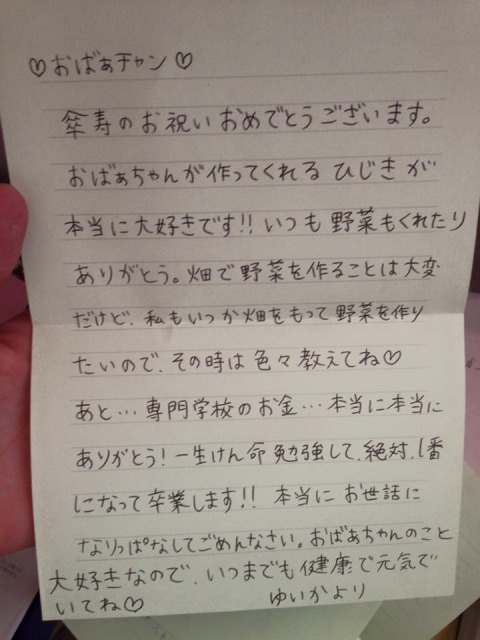 ♡おばぁチャン♡
傘寿のお祝いおめでとうございます。
おばぁちゃんが作ってくれるひじきが
本当に大好きです!!いつも野菜もくれたり
ありがとう。畑で野菜を作ることは大変
だけど、私もいつか畑をもって野菜を作り
たいので、その時は色々教えてね♡
あと…専門学校のお金…本当に本当に
ありがとう!一生けん命勉強して、絶対、1番
になって卒業します!!本当にお世話に
なりっぱなしでごめんなさい。おばあちゃんのこと
大好きなので、いつまでも健康で元気で
いてね♡ ゆいかより